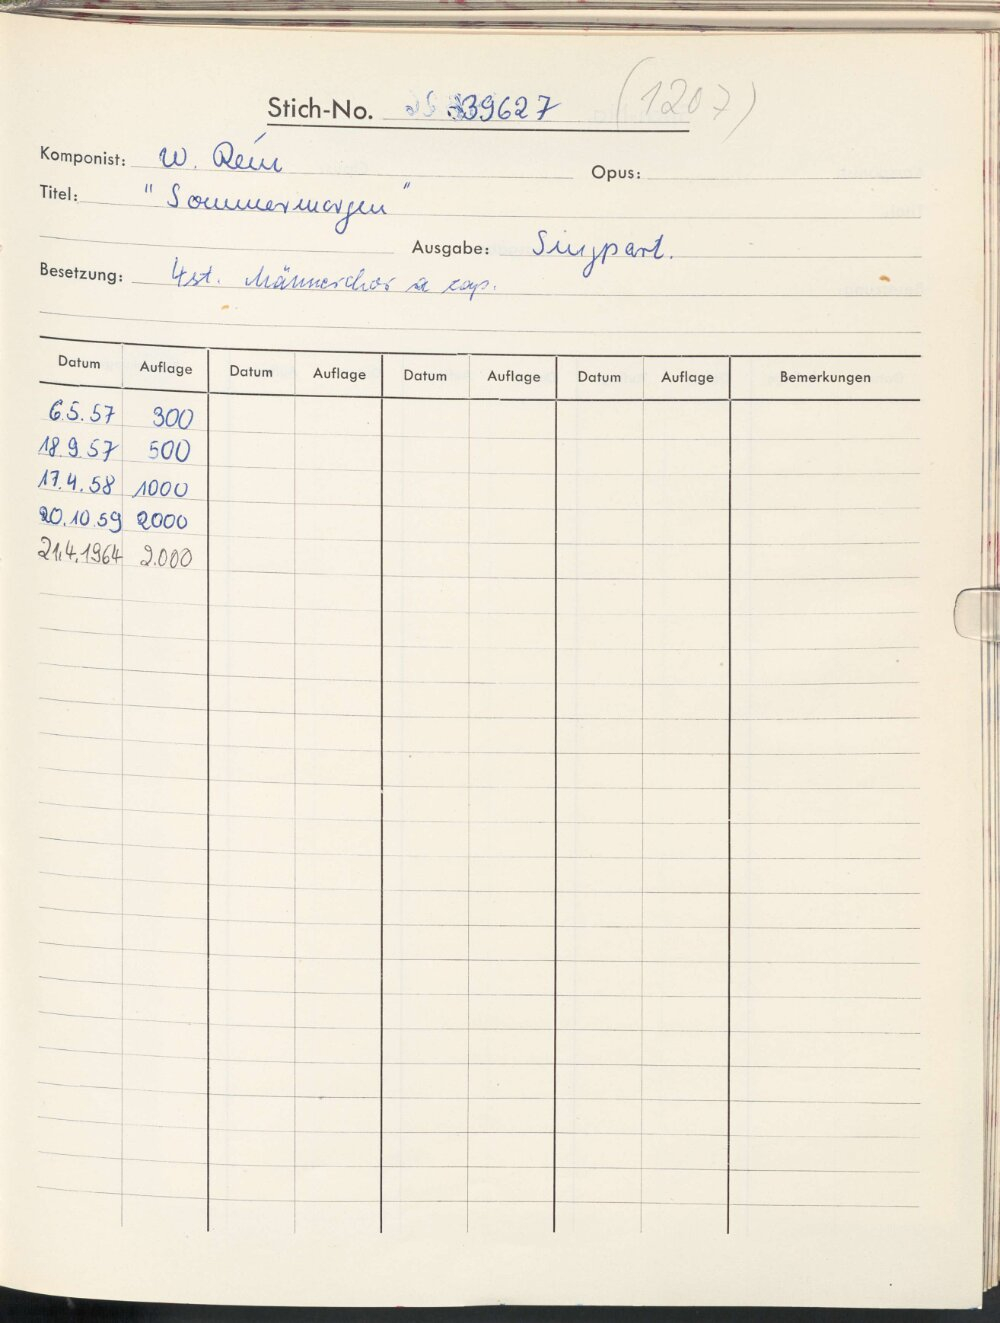 Stich-No. 39627 (1207)
Komponist: W. Rein Opus:
Titel: "Sommermorgen"
Ausgabe: Singpart.
Besetzung: 4st. Männerchor a cap.
Datum Auflage Datum Auflage Datum Auflage Datum Auflage Bemerkungen
6.5.57 300
18.9.57 500
17.4.58 1000
20.10.59 2000
21.4.1964 2.000